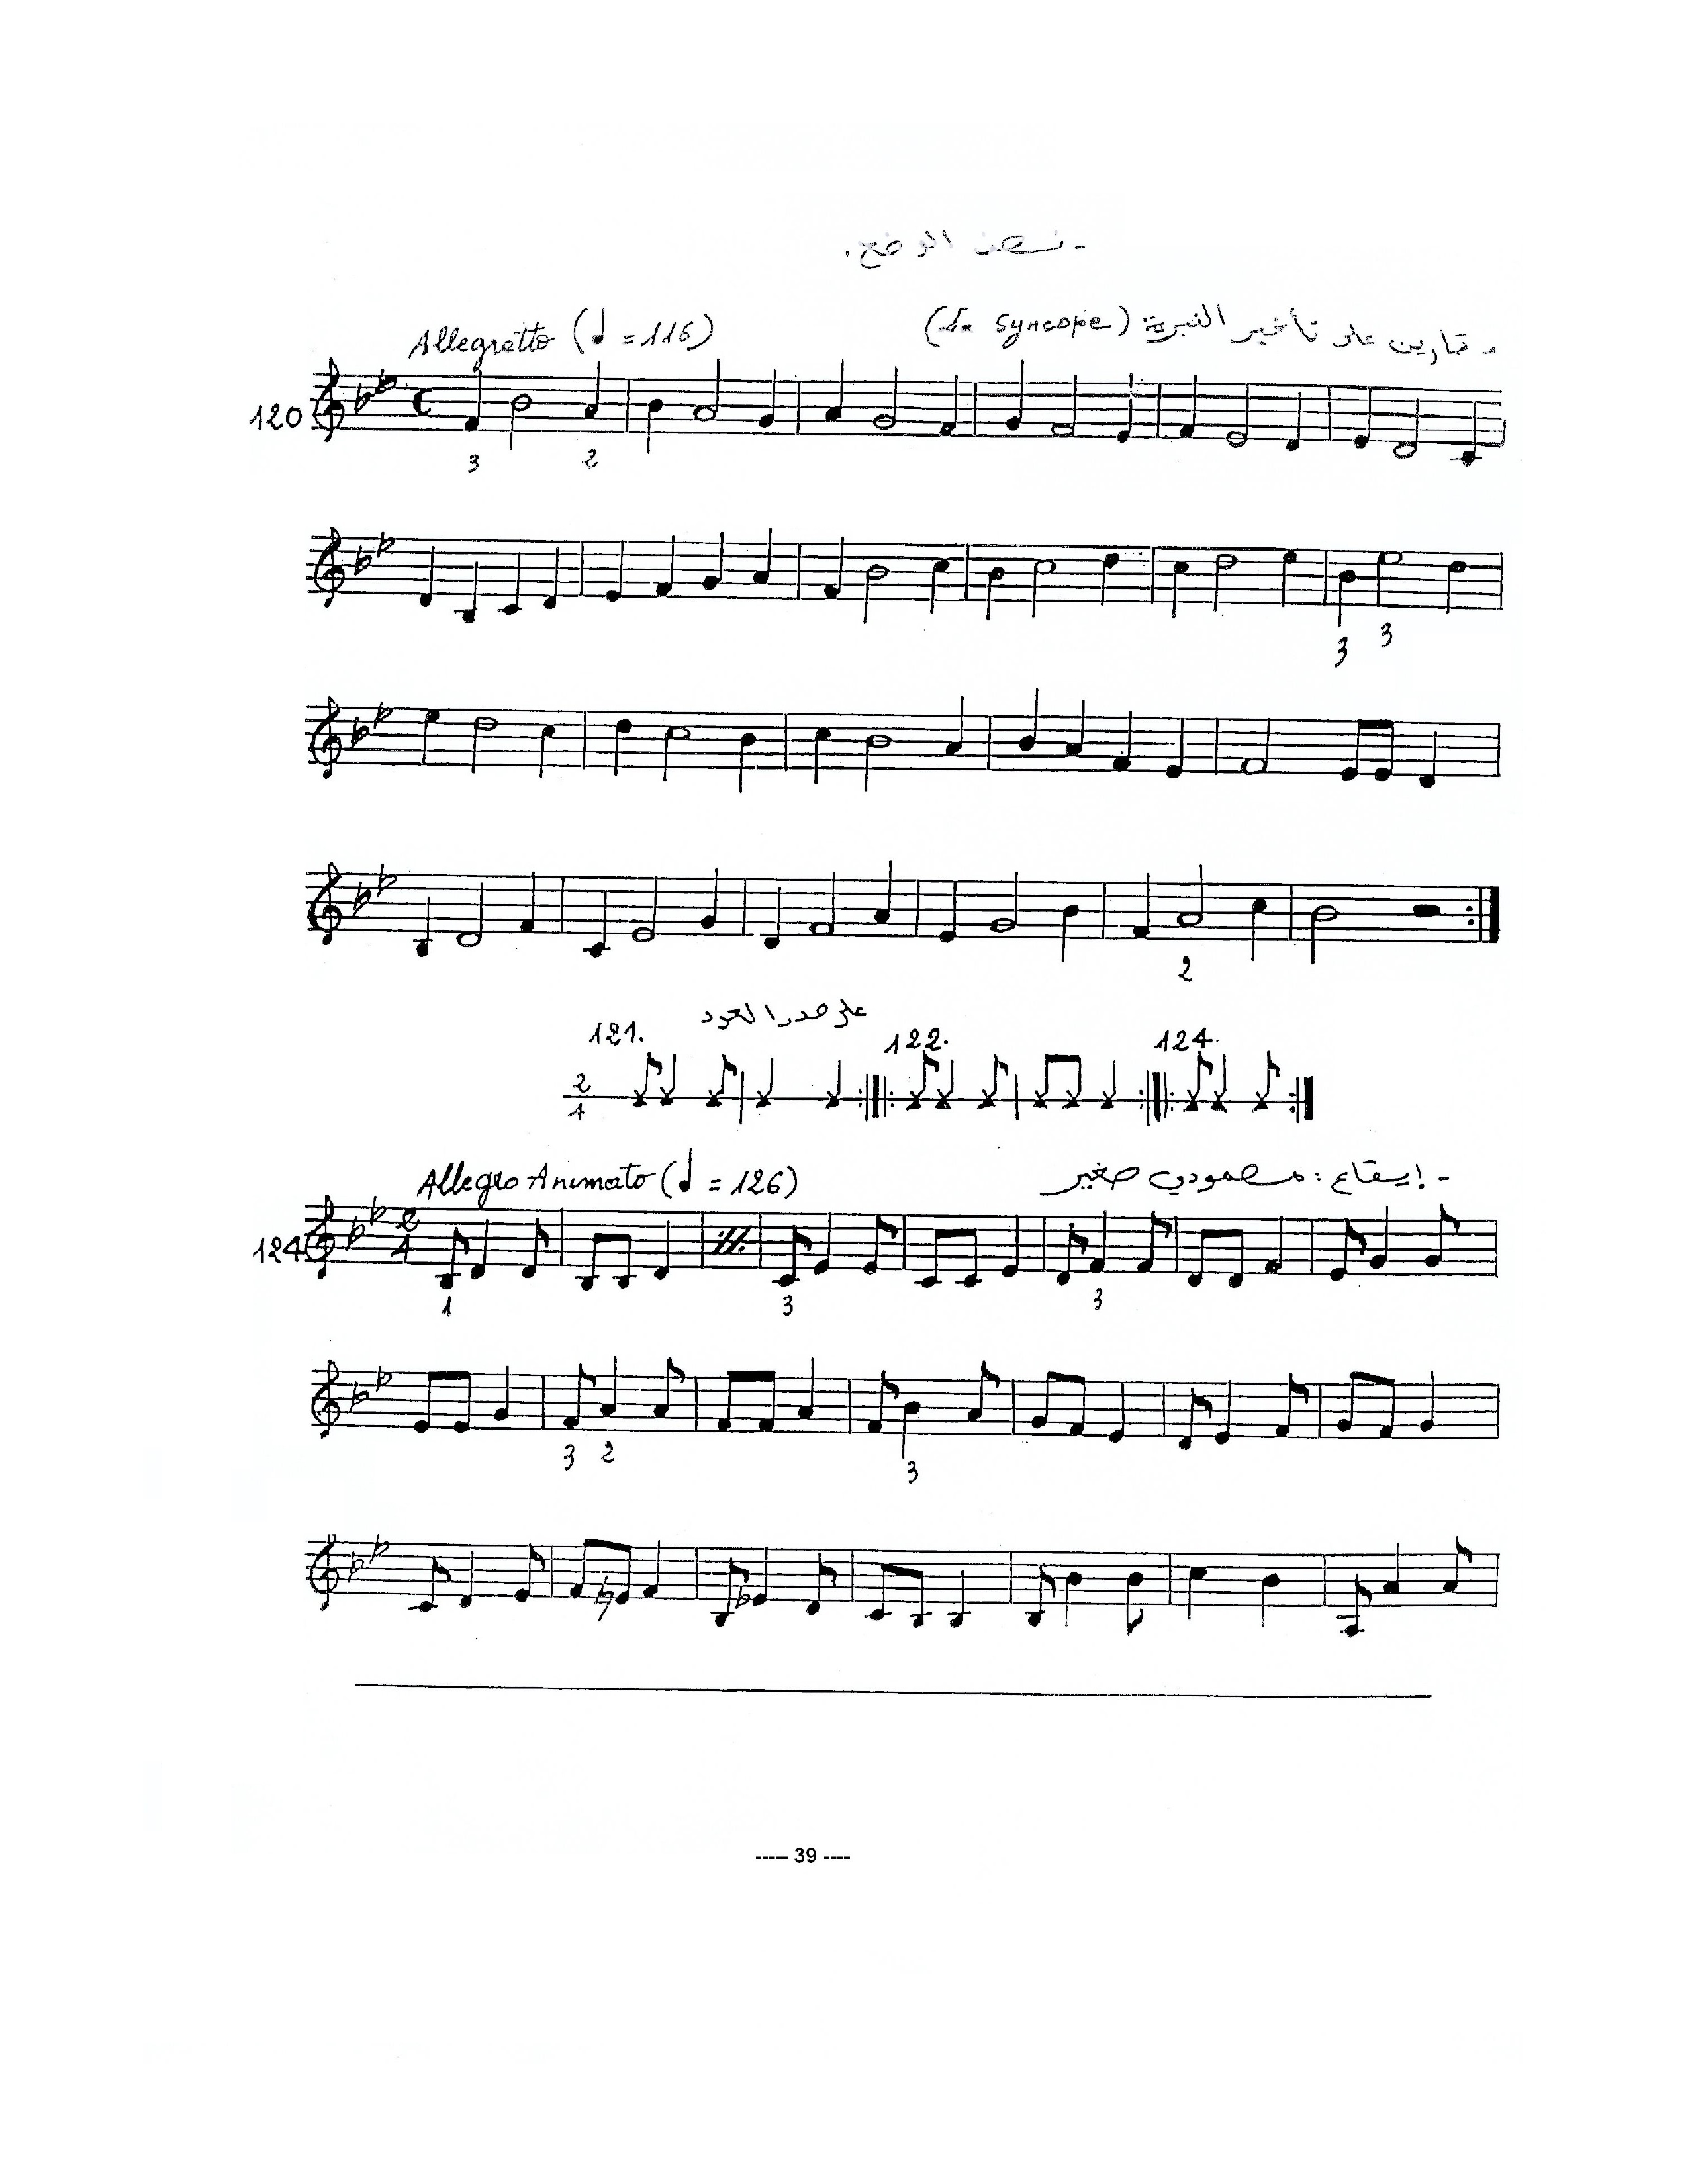 - نصف الوضع.
- تمارين على تأخير النبرة (La Syncope)
Allegretto (♩ = 116)
120
3 2
3 3
2
على صدر العود
121. 122. 124.
2
4
- إيقاع : مصمودي صغير
Allegro Animato (♩ = 126)
124
2
4
1 3 3
3 2 3
----- 39 ----